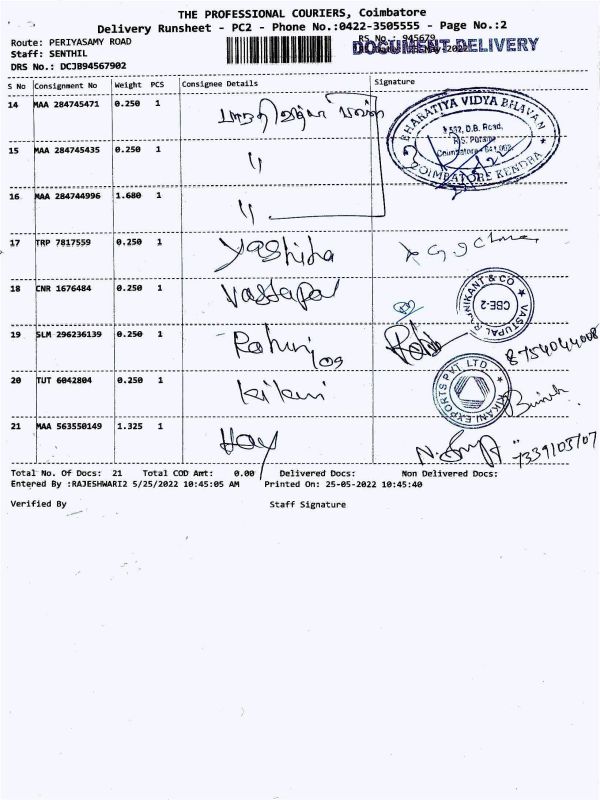 THE PROFESSIONAL COURIERS, Coimbatore
Delivery Runsheet - PC2 - Phone No.:0422-3505555 - Page No.:2
Route: PERIYASAMY ROAD
RS No.: 945679
Staff: SENTHIL
DOCUMENT DELIVERY
DRS No.: DCJB94567902
S No Consignment No Weight PCS Consignee Details Signature
14 MAA 284745471 0.250 1
BHARATIYA VIDYA BHAVAN
532, D.B. Road,
R.S. Puram
Coimbatore - 641 002
COIMBATORE KENDRA
15 MAA 284745435 0.250 1 "
16 MAA 284744996 1.680 1 "
17 TRP 7817559 0.250 1 Yashida
18 CNR 1676484 0.250 1 Vastapal
VASTUPAL RAJNIKANT & CO
CBE-2
19 SLM 296236139 0.250 1
8754044008
20 TUT 6042804 0.250 1 kikani
KIKANI EXPORTS PVT LTD.
21 MAA 563550149 1.325 1
7339103707
Total No. Of Docs: 21 Total COD Amt: 0.00 Delivered Docs: Non Delivered Docs:
Entered By :RAJESHWARI2 5/25/2022 10:45:05 AM Printed On: 25-05-2022 10:45:40
Verified By Staff Signature